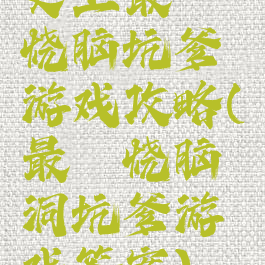 史上最
烧脑坑爹
游戏攻略(
最 烧脑
洞坑爹游
戏答案)